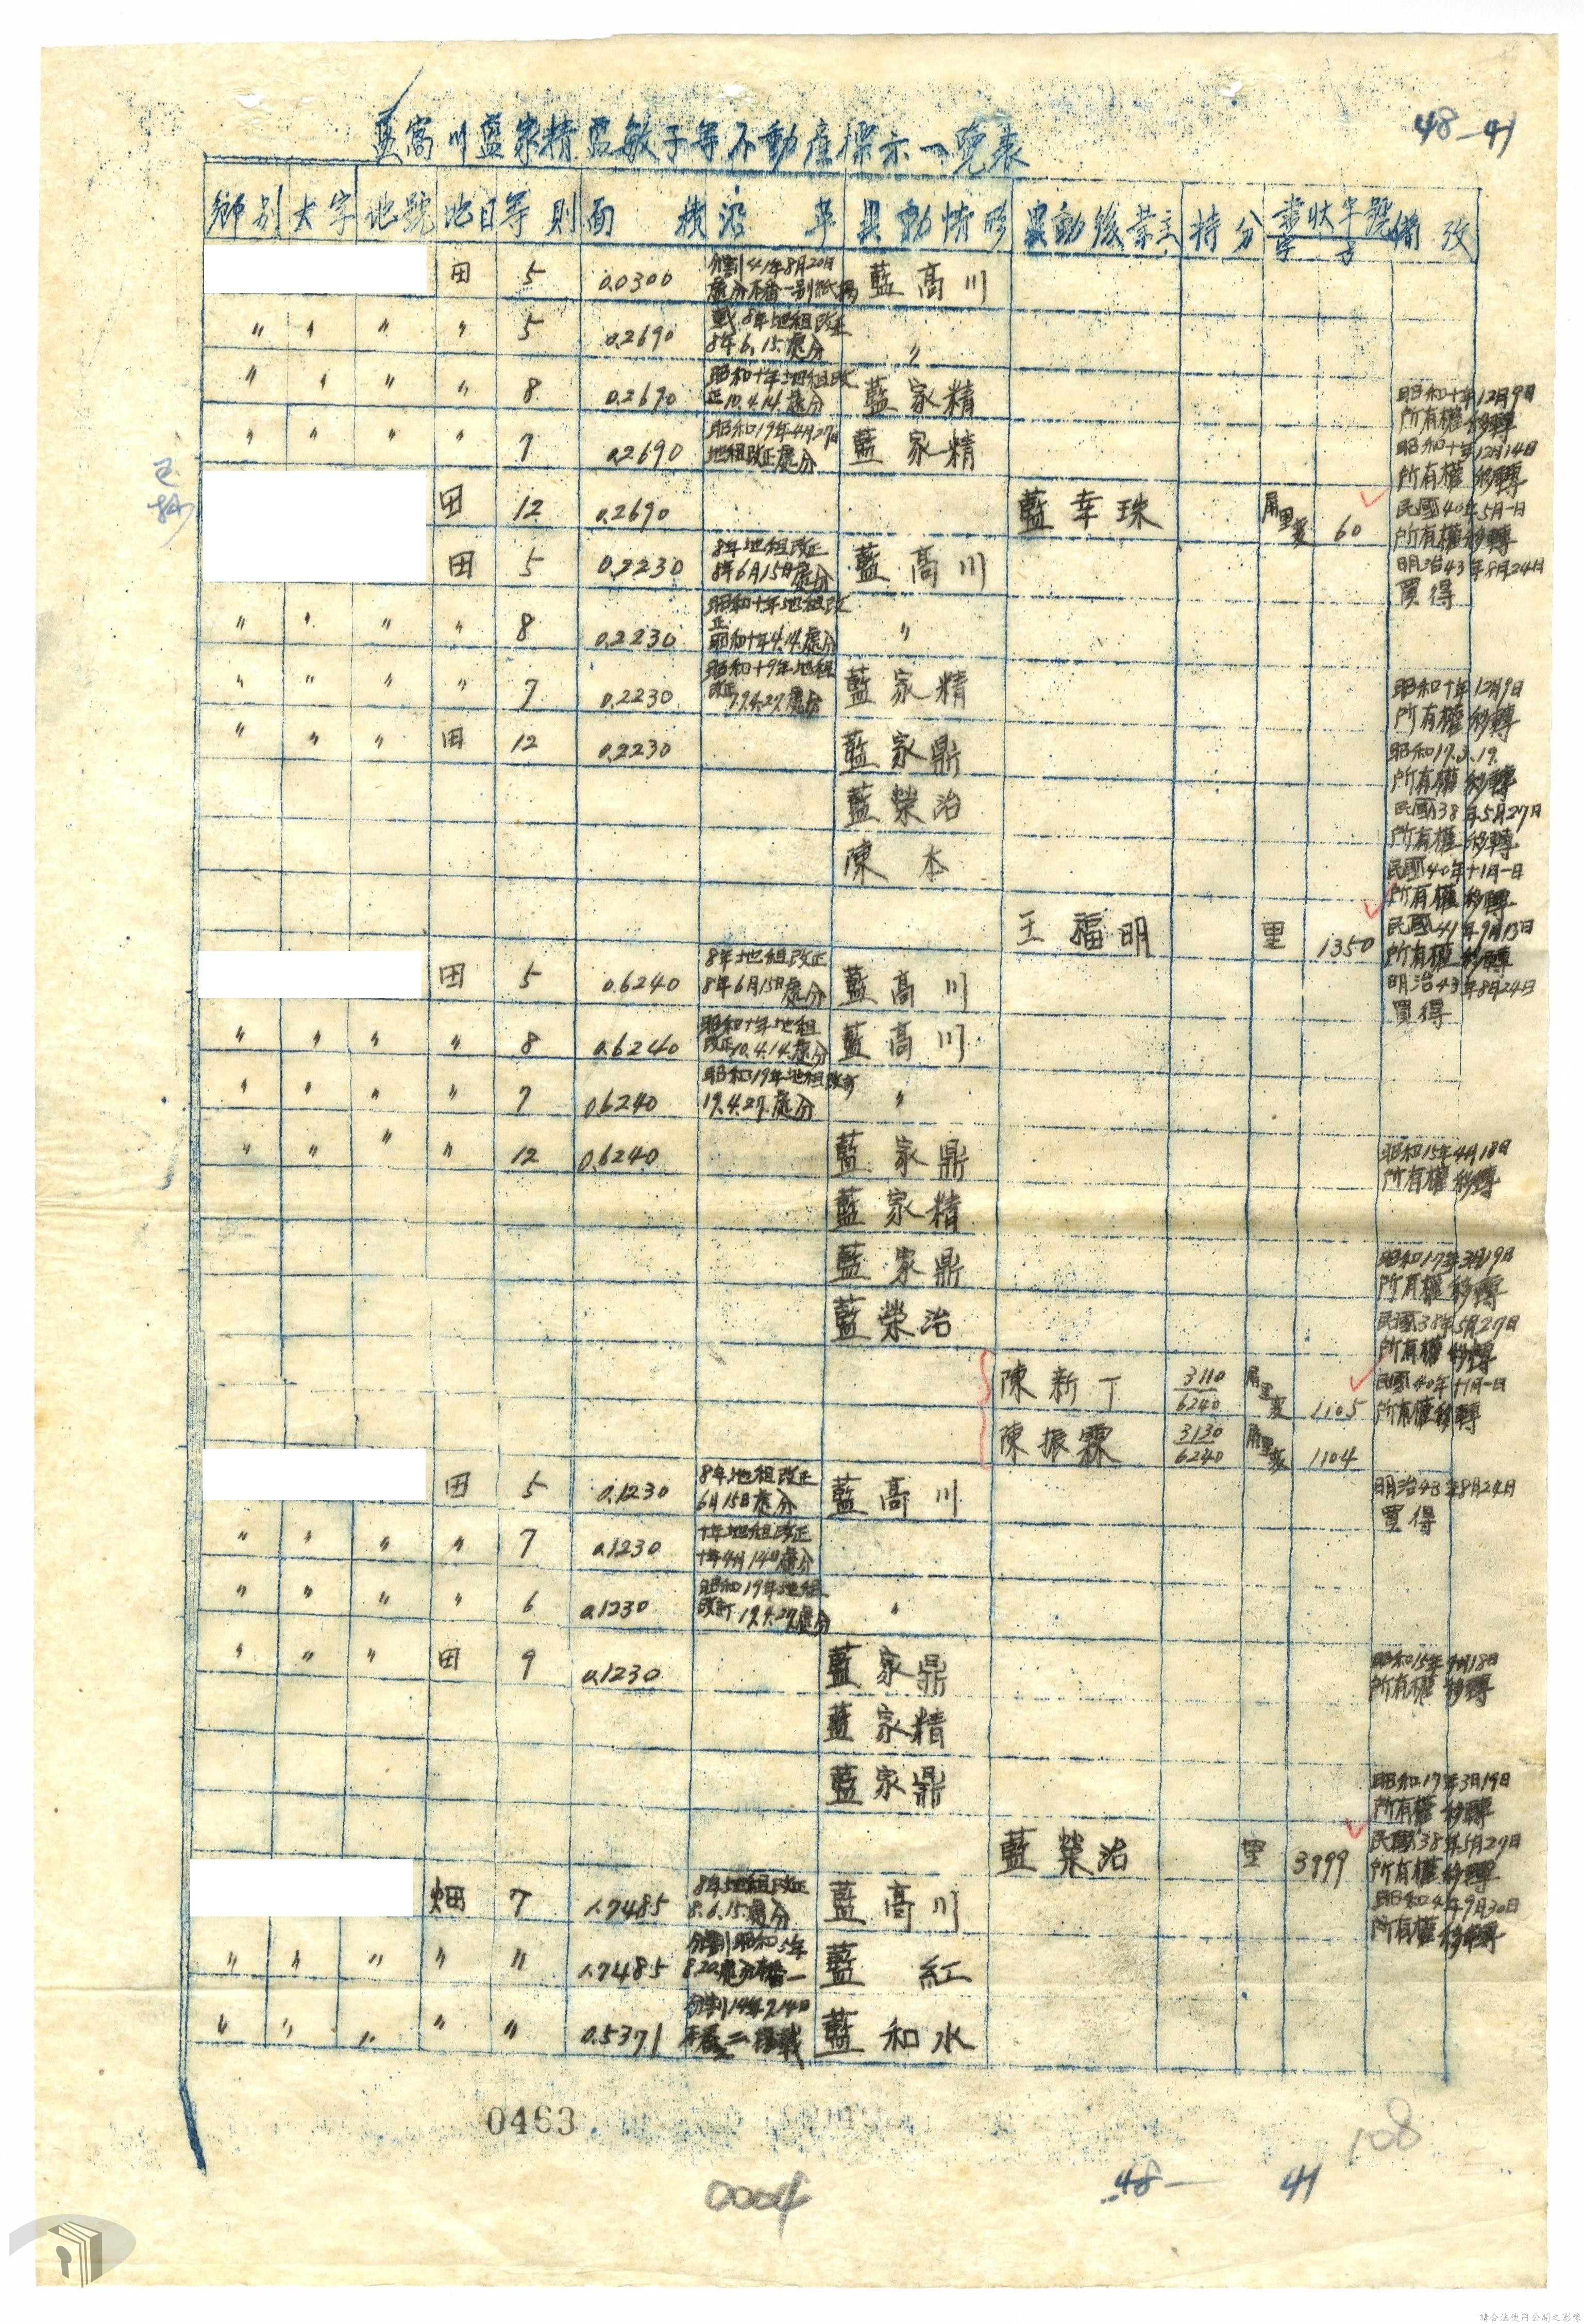 48-41
藍高川藍家精藍敏子等不動產標示一覽表
鄉別 大字 地號 地目 等則 面積 沿革 異動情形 異動後業主 持分 書狀字號 備攷
字 号
田 5 0.0300 分割41年8月20日處分本番一別紙揭 藍高川
〃 〃 〃 〃 5 0.2690 載 8年地租改正8年6.15.處分 〃
〃 〃 〃 〃 8 0.2690 昭和十年地租改正10.4.14.處分 藍家精 昭和十年12月9日所有權移轉
〃 〃 〃 〃 7 0.2690 昭和19年4月27日地租改正處分 藍家精 昭和十年12月14日所有權移轉
已抄
田 12 0.2690 藍幸珠 屏里変 60 民國40年5月一日所有權移轉
田 5 0.2230 8年地租改正8年6月15日處分 藍高川 明治43年8月24日買得
〃 〃 〃 〃 8 0.2230 昭和十年地租改正昭和十年4.14.處分 〃
〃 〃 〃 〃 7 0.2230 昭和十9年地租改正19.4.27.處分 藍家精 昭和十年12月9日所有權移轉
〃 〃 〃 田 12 0.2230 藍家鼎 昭和17.3.19.所有權移轉
藍榮治 民國38年5月27日所有權移轉
陳本 民國40年十1月一日所有權移轉
王福明 里 1350 民國41年9月13日所有權移轉
田 5 0.6240 8年地租改正8年6月15日處分 藍高川 明治43年8月24日買得
〃 〃 〃 〃 8 0.6240 昭和十年地租改正10.4.14.處分 藍高川
〃 〃 〃 〃 7 0.6240 昭和19年地租改訂19.4.27.處分 〃
〃 〃 〃 〃 12 0.6240 藍家鼎 昭和15年4月18日所有權移轉
藍家精
藍家鼎 昭和17年3月19日所有權移轉
藍榮治 民國38年5月27日所有權移轉
陳新丁 3110/6240 屏里変 1105 民國40年十1月一日所有權移轉
陳振霖 3130/6240 屏里変 1104
田 5 0.1230 8年地租改正6月15日處分 藍高川 明治43年8月24日買得
〃 〃 〃 〃 7 0.1230 十年地租改正十年4月14日處分
〃 〃 〃 〃 6 0.1230 昭和19年地租改訂19.4.27.處分 〃
〃 〃 〃 田 9 0.1230 藍家鼎 昭和15年4月18日所有權移轉
藍家精
藍家鼎 昭和17年3月19日所有權移轉
藍榮治 里 3999 民國38年5月27日所有權移轉
畑 7 1.7485 8年地租改正8.6.15.處分 藍高川 昭和4年9月30日所有權移轉
〃 〃 〃 〃 〃 1.7485 分割昭和5年8.20.處分本番一 藍紅
〃 〃 〃 〃 〃 0.5371 分割14年7.14日 藍和水
0463
108
0004
48- 41
請合法使用公開之影像